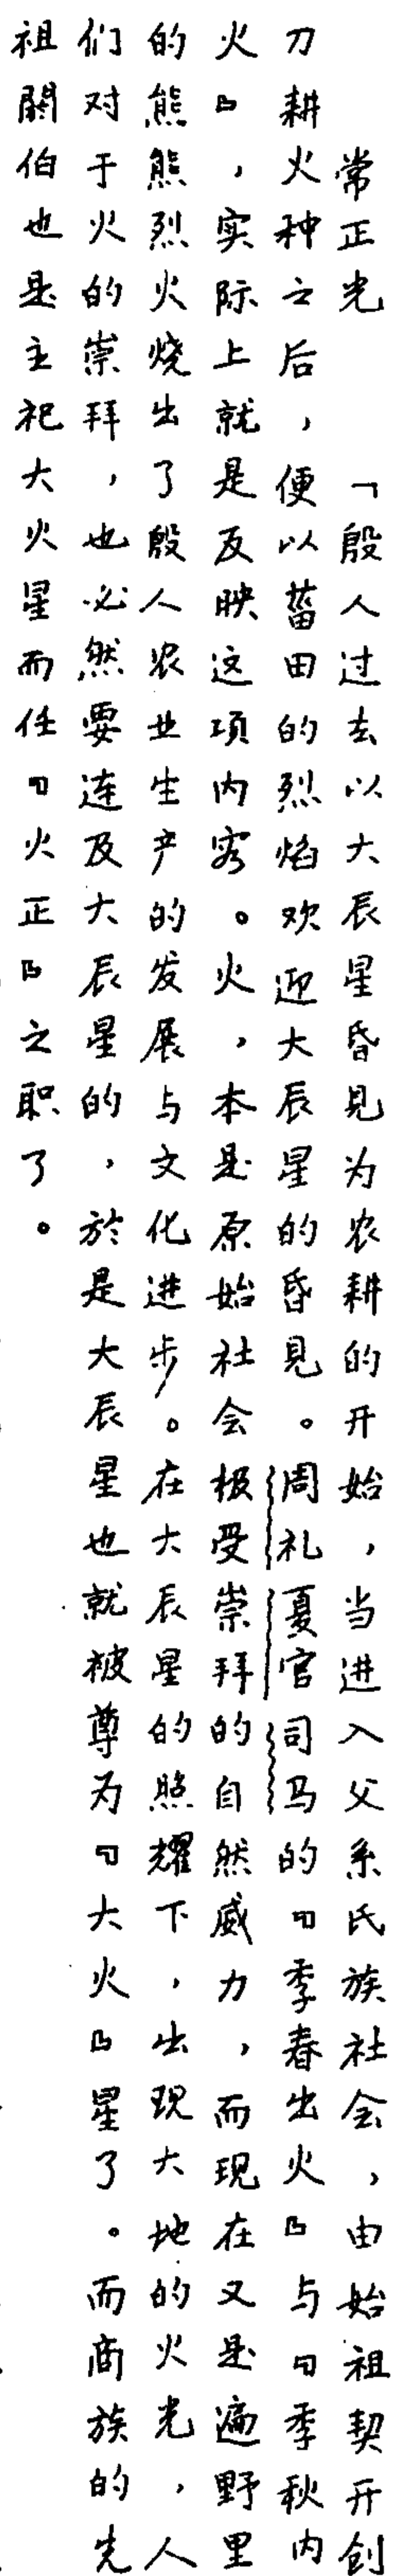 常正光　「殷人过去以大辰星昏見为农耕的开始，当进入父系氏族社会，由始祖契开创
刀耕火种之后，便以菑田的烈焰欢迎大辰星的昏見。周礼夏官司马的『季春出火』与『季秋内
火』，实际上就是反映这项内容。火，本是原始社会极受崇拜的自然威力，而现在又是遍野里
的熊熊烈火烧出了殷人农业生产的发展与文化进步。在大辰星的照耀下，出现大地的火光，人
们对于火的崇拜，也必然要连及大辰星的，於是大辰星也就被尊为『大火』星了。而商族的先
祖閼伯也是主祀大火星而任『火正』之职了。